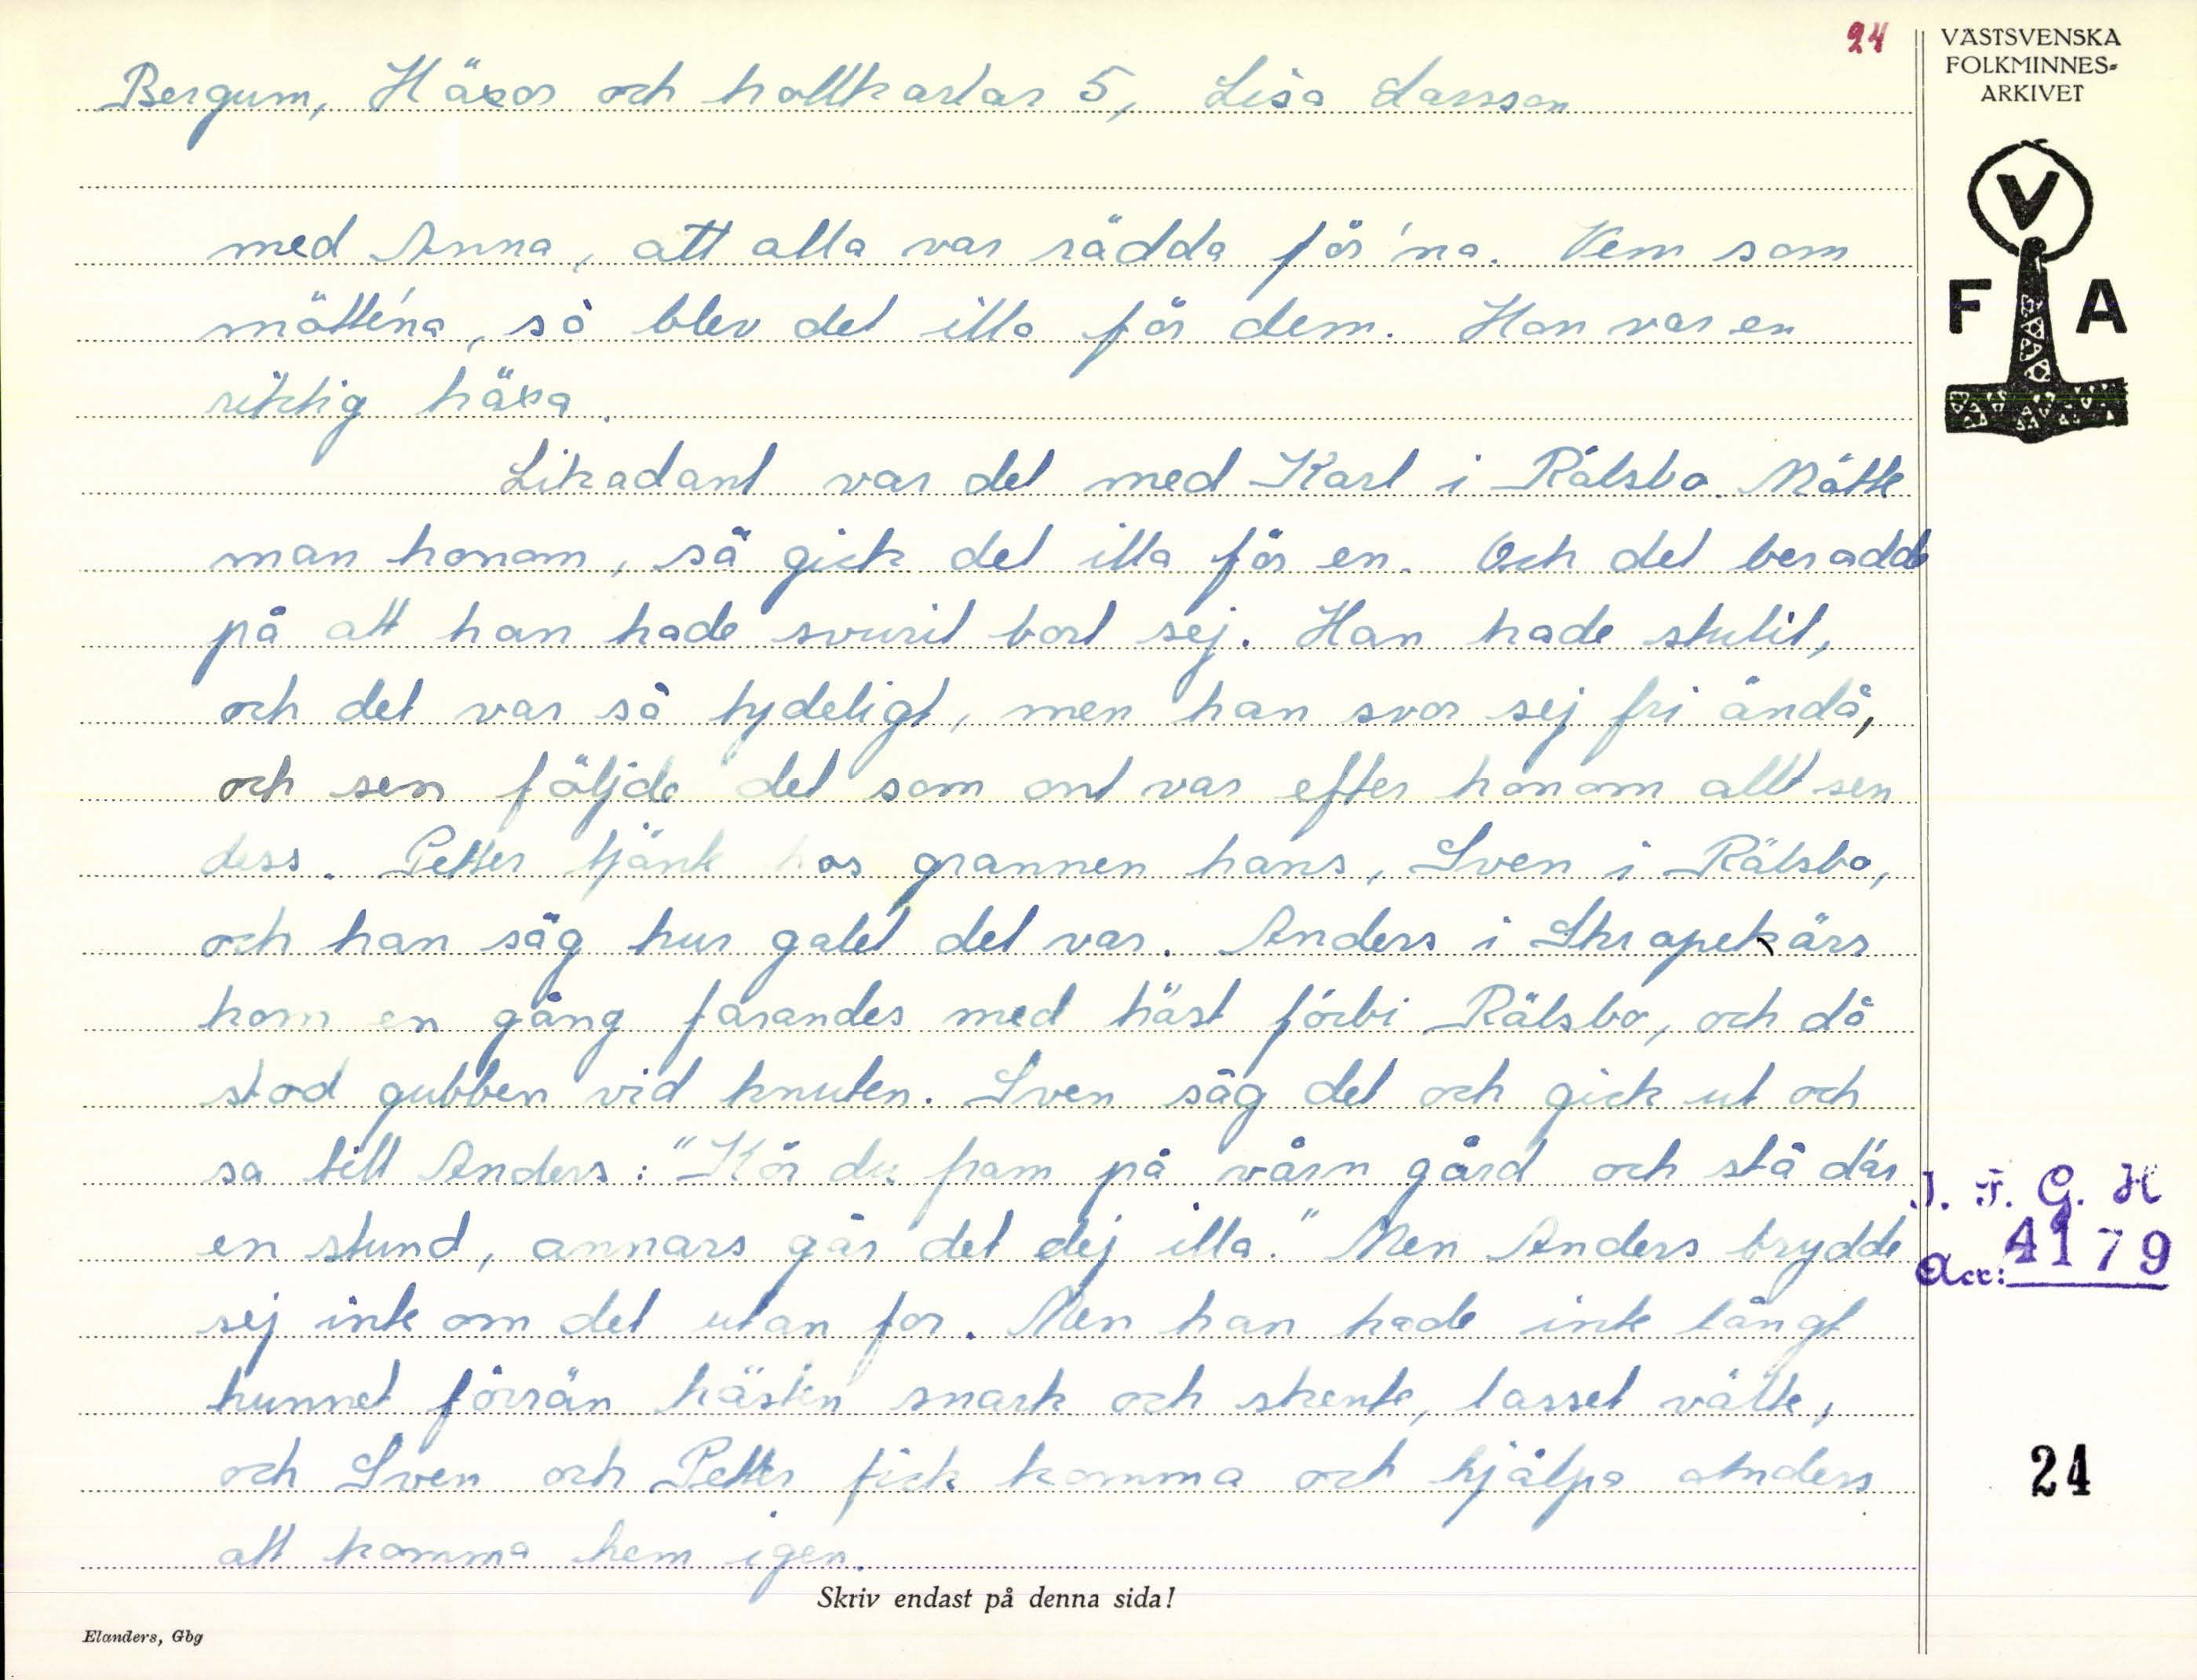 24
Bergum, Häxor och trollkarlar 5, Lisa Larsson
med Anna, att alla var rädda för'na. Vem som
mötte'na, så blev det illa för dem. Hon var en
riktig häxa.
Likadant var det med Karl i Rälsbo. Mötte
man honom, så gick det illa för en. Och det berodde
på att han hade svurit bort sej. Han hade stulit,
och det var så tydeligt, men han svor sej fri ändå,
och sen följde det som ont var efter honom allt sen
dess. Petter tjänte hos grannen hans, Sven i Rälsbo,
och han såg hur galet det var. Anders i Skrapekärr
kom en gång farandes med häst förbi Rälsbo, och då
stod gubben vid knuten. Sven såg det och gick ut och
sa till Anders: "Kör du fram på vårn gård och stå där
en stund, annars går det dej illa." Men Anders brydde
sej inte om det utan for. Men han hade inte långt
hunnet förrän hästen snark och skente, lasset välte,
och Sven och Petter fick komma och hjälpa Anders
att komma hem igen.
Skriv endast på denna sida!
Elanders, Gbg
VÄSTSVENSKA
FOLKMINNES-
ARKIVET
V
F A
I. F. G. H
Acc: 4179
24